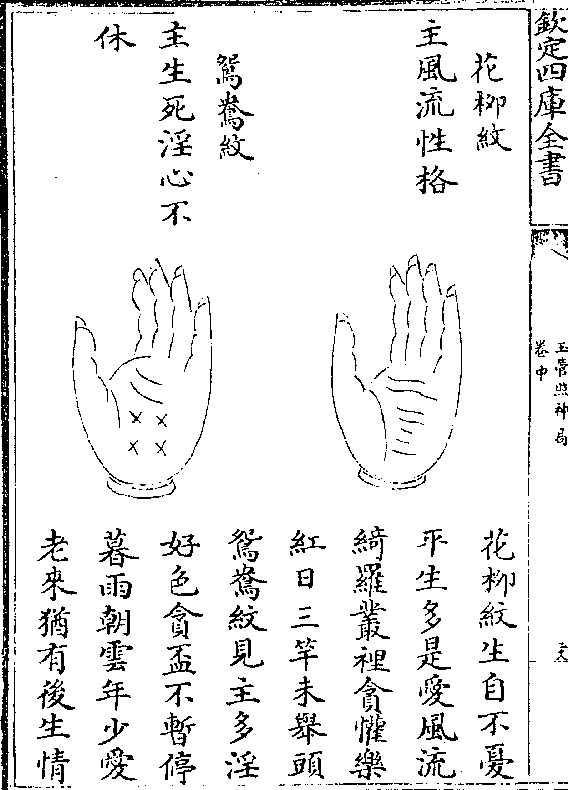 欽定四庫全書
玉管照神局
卷中
花柳紋
主風流性格
花柳紋生自不憂
平生多是愛風流
綺羅叢裡貪懽樂
紅日三竿未舉頭
鴛鴦紋
主生死淫心不
休
鴛鴦紋見主多淫
好色貪盃不暫停
暮雨朝雲年少愛
老來猶有後生情